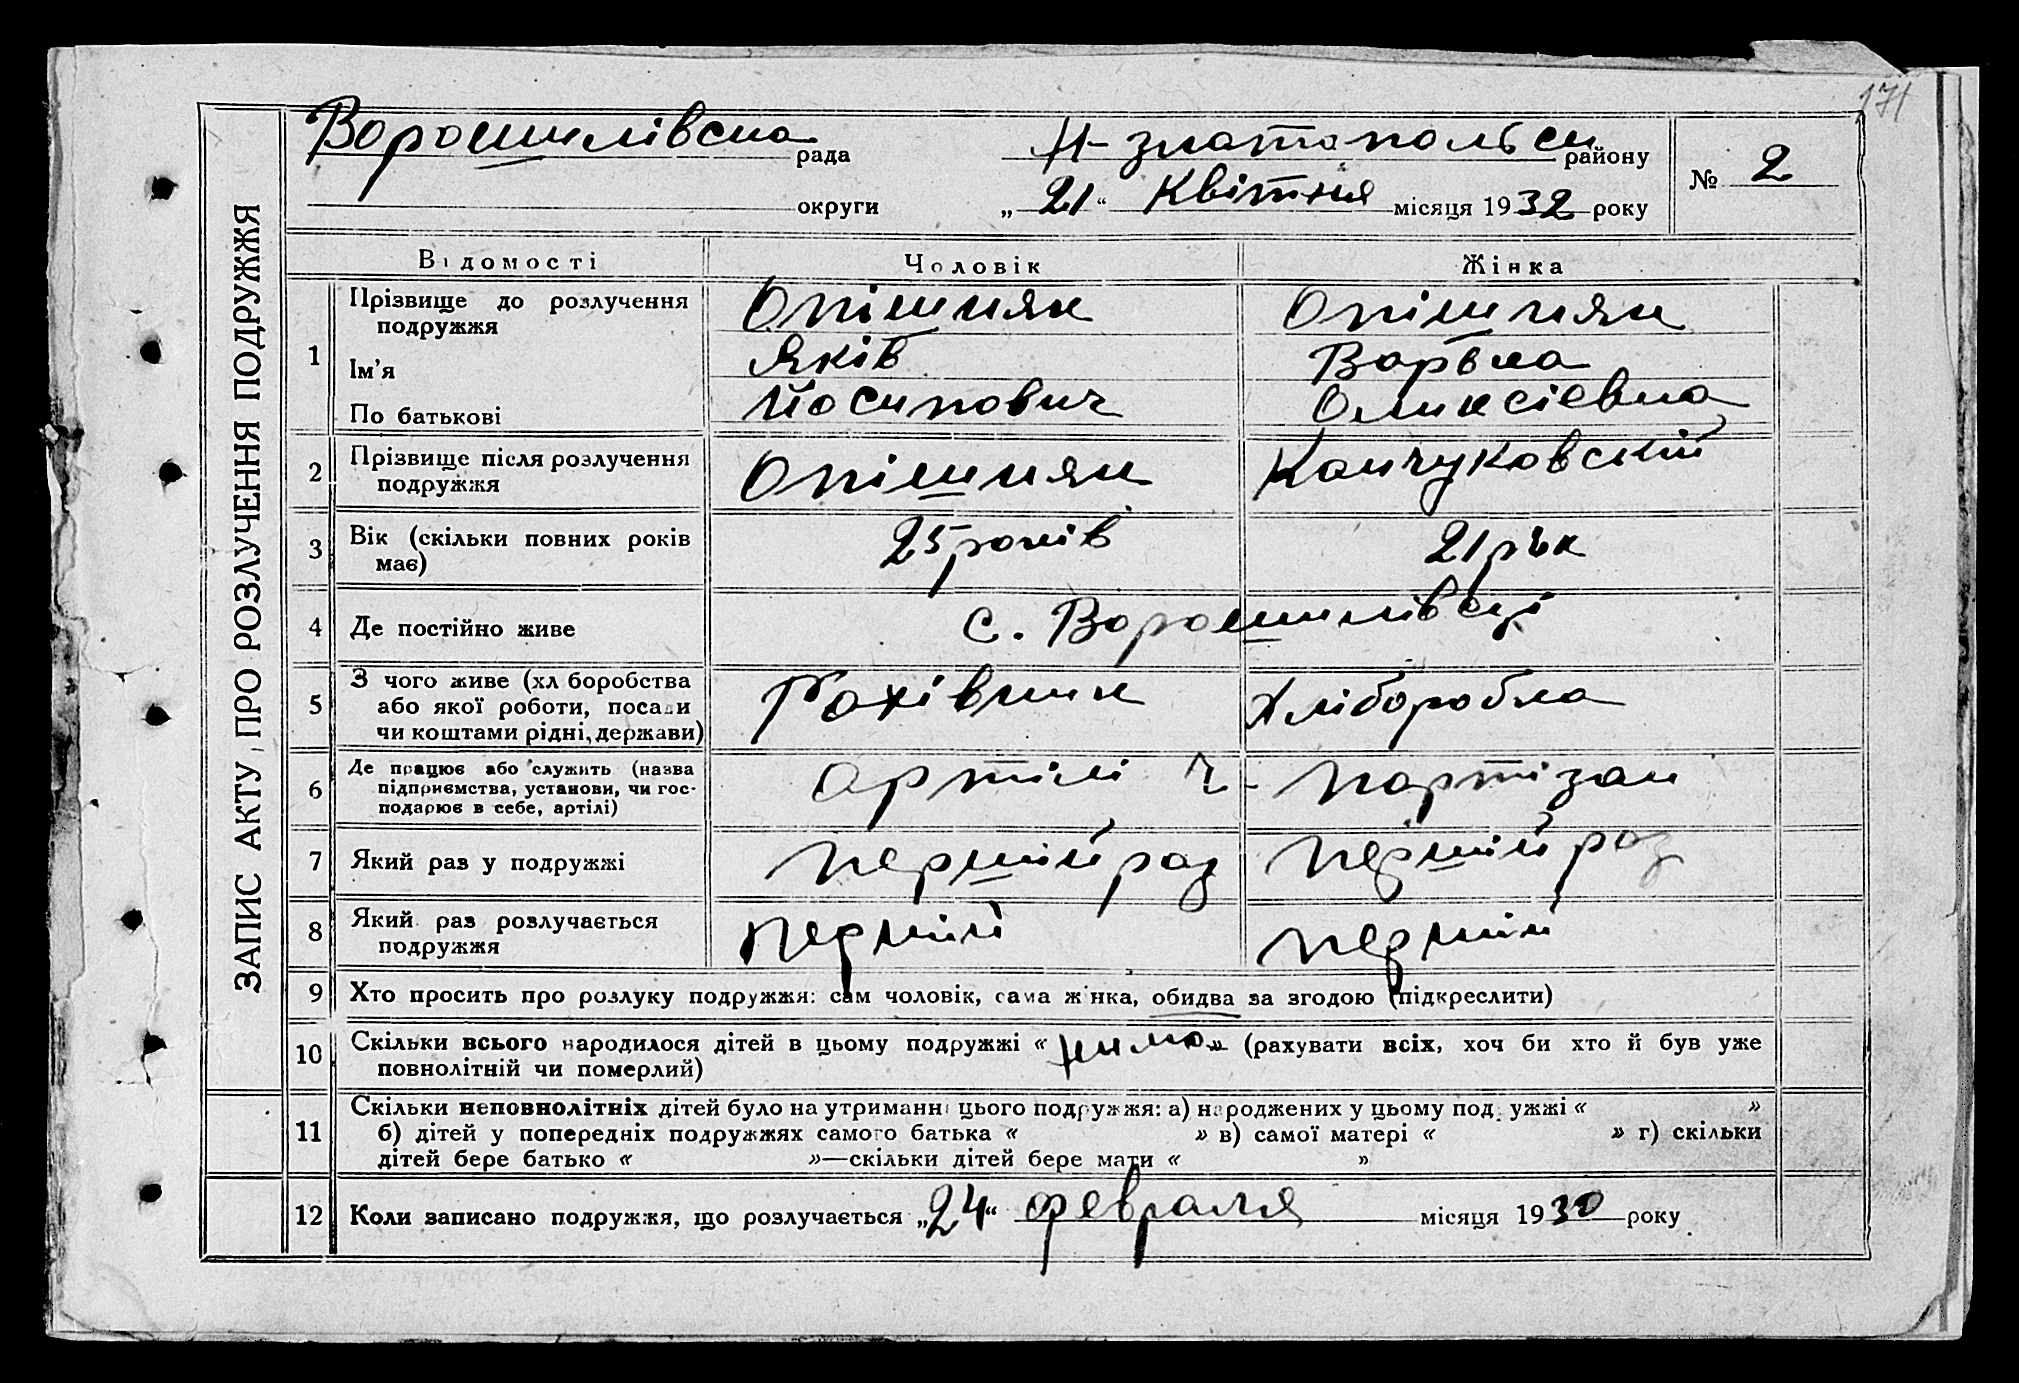 171
ЗАПИС АКТУ ПРО РОЗЛУЧЕННЯ ПОДРУЖЖЯ
Ворошилівска рада
Н-златапольск району
№ 2
округи
„ 21 “ Квітня місяця 1932 року
Відомості Чоловік Жінка
1
Прізвище до розлучення подружжя Опішняк Опішняк
Ім’я Яків Варька
По батькові Йосипович Оликсієвна
2 Прізвище після розлучення подружжя Опішняк
3 Вік (скільки повних років має) 25 років 21 рік
4 Де постійно живе с. Ворошилівці
5 З чого живе (хліборобства або якої роботи, посади чи коштами рідні, держави) Рахівник Хліборобка
6 Де працює або служить (назва підприємства, установи, чи господарює в себе, артілі) артілі Ч- партізан
7 Який раз у подружжі першій раз першій раз
8 Який раз розлучається подружжя першій першій
9 Хто просить про розлуку подружжя: сам чоловік, сама жінка, обидва за згодою (підкреслити)
10 Скільки всього народилося дітей в цьому подружжі « нима » (рахувати всіх, хоч би хто й був уже
повнолітній чи померлий)
11 Скільки неповнолітніх дітей було на утриманні цього подружжя: а) народжених у цьому подружжі « »
б) дітей у попередніх подружжях самого батька « » в) самої матері « » г) скільки
дітей бере батько « »—скільки дітей бере мати « »
12 Коли записано подружжя, що розлучається „24“ февраля місяця 1930 року